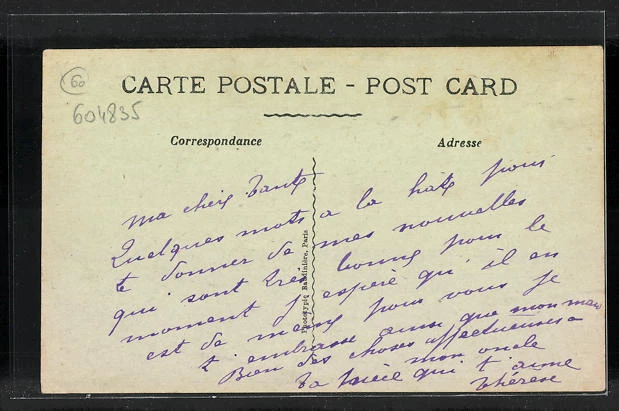 60
CARTE POSTALE - POST CARD
604835
Correspondance
Adresse
Phototypie Baudinière, Paris
ma chère tante
Quelques mots a la hâte pour
te donner de mes nouvelles
qui sont très bonne pour le
moment j'espère qu'il en
est de meme pour vous je
t'embrasse ainsi que mon
Bien des choses affectueuses a
mon oncle
ta nièce qui t'aime
Thérèse